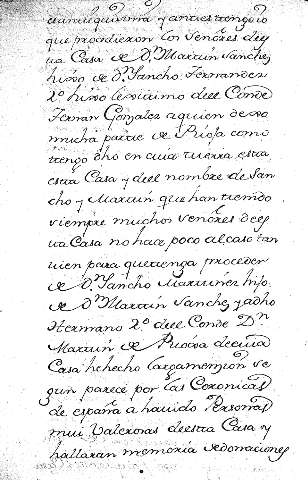 que procedieron los Señores de es
ta Casa de Dn Martin Sanchez
hixo de Dn Sancho Fernandez
2º hixo lexitimo del Conde
Fernan Gonzalez a quien dexo
mucha parte de Rioja como
tengo dho en cuia tierra esta
esta Casa y del nombre de San
cho y Martin que han tenido
siempre muchos Señores de es
ta Casa no hace poco al caso tan
vien para que tenga proceder
de Dn Sancho Martinez hijo
de Dn Martin Sanchez ya dho
Hermano 2º del Conde Dn
Martin de de cuia
Casa he hecho larga mension se
gun parece por las Coronicas
de españa a havido Personas
mui Valerosas de esta Casa y
hallaran memoria de donaciones